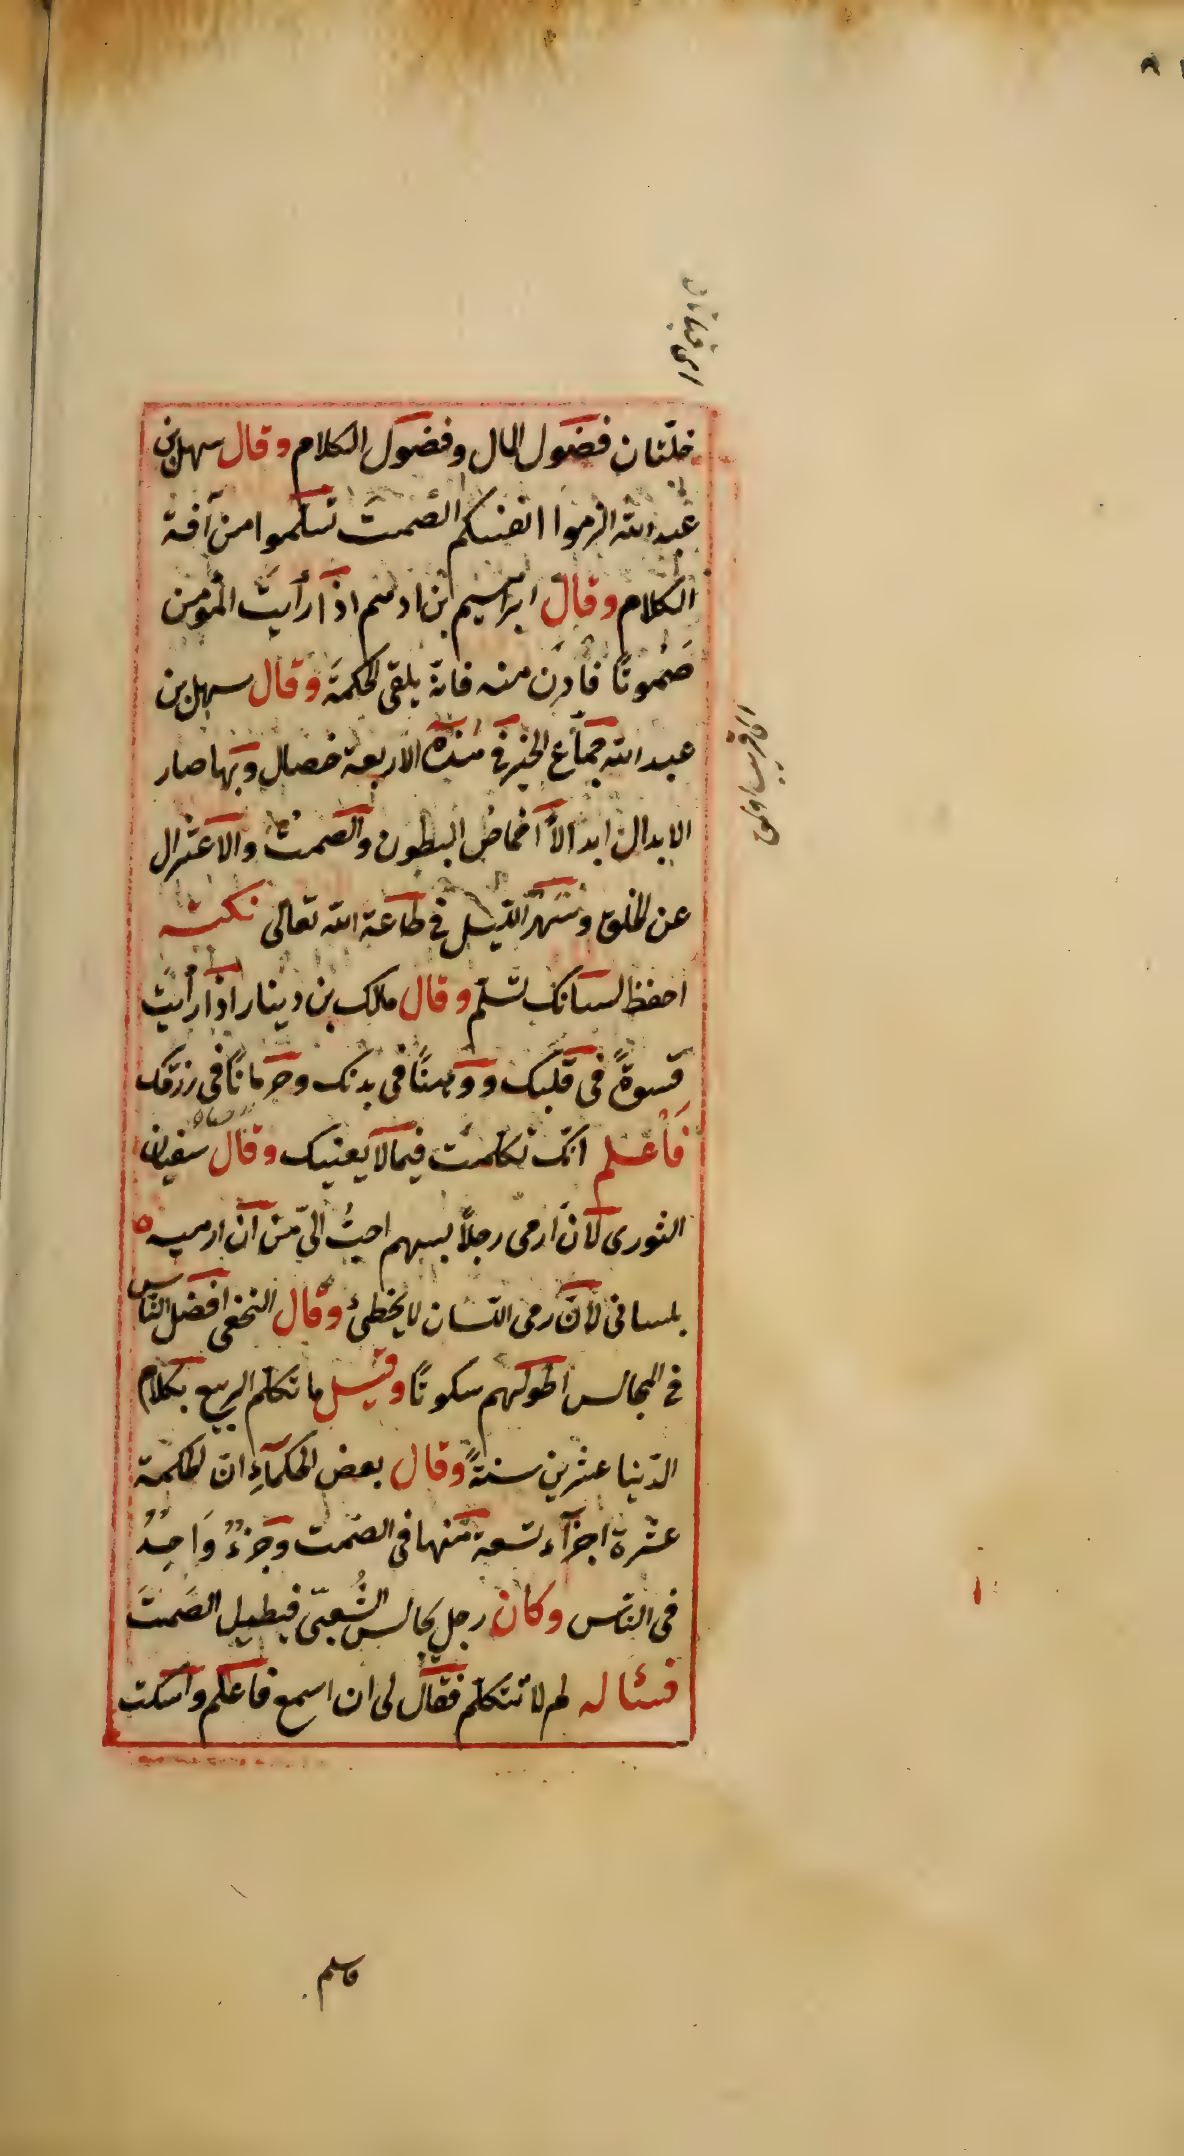 خلّتان فضول المال وفضول الكلام وقال سهل بن
عبد الله الزموا انفسكم الصّمت تسلموا من آفة
الكلام وقال ابراهيم بن ادهم اذا رأيت المؤمن
صَمُوتًا فادن منه فانّه يلقى الحكمة وقال سهل بن
عبد الله جماع الخير في هذه الاربعة خصال وبها صار
الابدال ابدالاً اخماص البطون والصمت والاعتزال
عن الخلق وسَهَر اللّيل في طاعة الله تعالى نكتـه
احفظ لسانك تسلم وقال مالك بن دينار اذا رأيت
قسوةً في قلبك ووهنًا في بدنك وحرمانًا في رزقك
فَاعلم انّك تكلّمت فيما لا يعنيك وقال سفيان
الثوري لأن أرمي رجلاً بسهم احبُّ اليّ من ان ارميه
بلساني لأنّ رمى اللسان لا يخطئ وقال النخعي افضل النّاس
في المجالس اطولهم سكوتًا وقيل ما تكلم الربيع بكلام
الدّنيا عشرين سنةً وقال بعض الحكمآءِ انّ الحكمة
عشرة اجزآء تسعة منها في الصّمت وجزءٌ وَاحِدٌ
في النّاس وكان رجل يجالس الشَّعبيّ فيطيل الصَمتَ
فسئاله لم لا تتكلّم فقال لي ان اسمع فاعلم واسكت
فاسلم